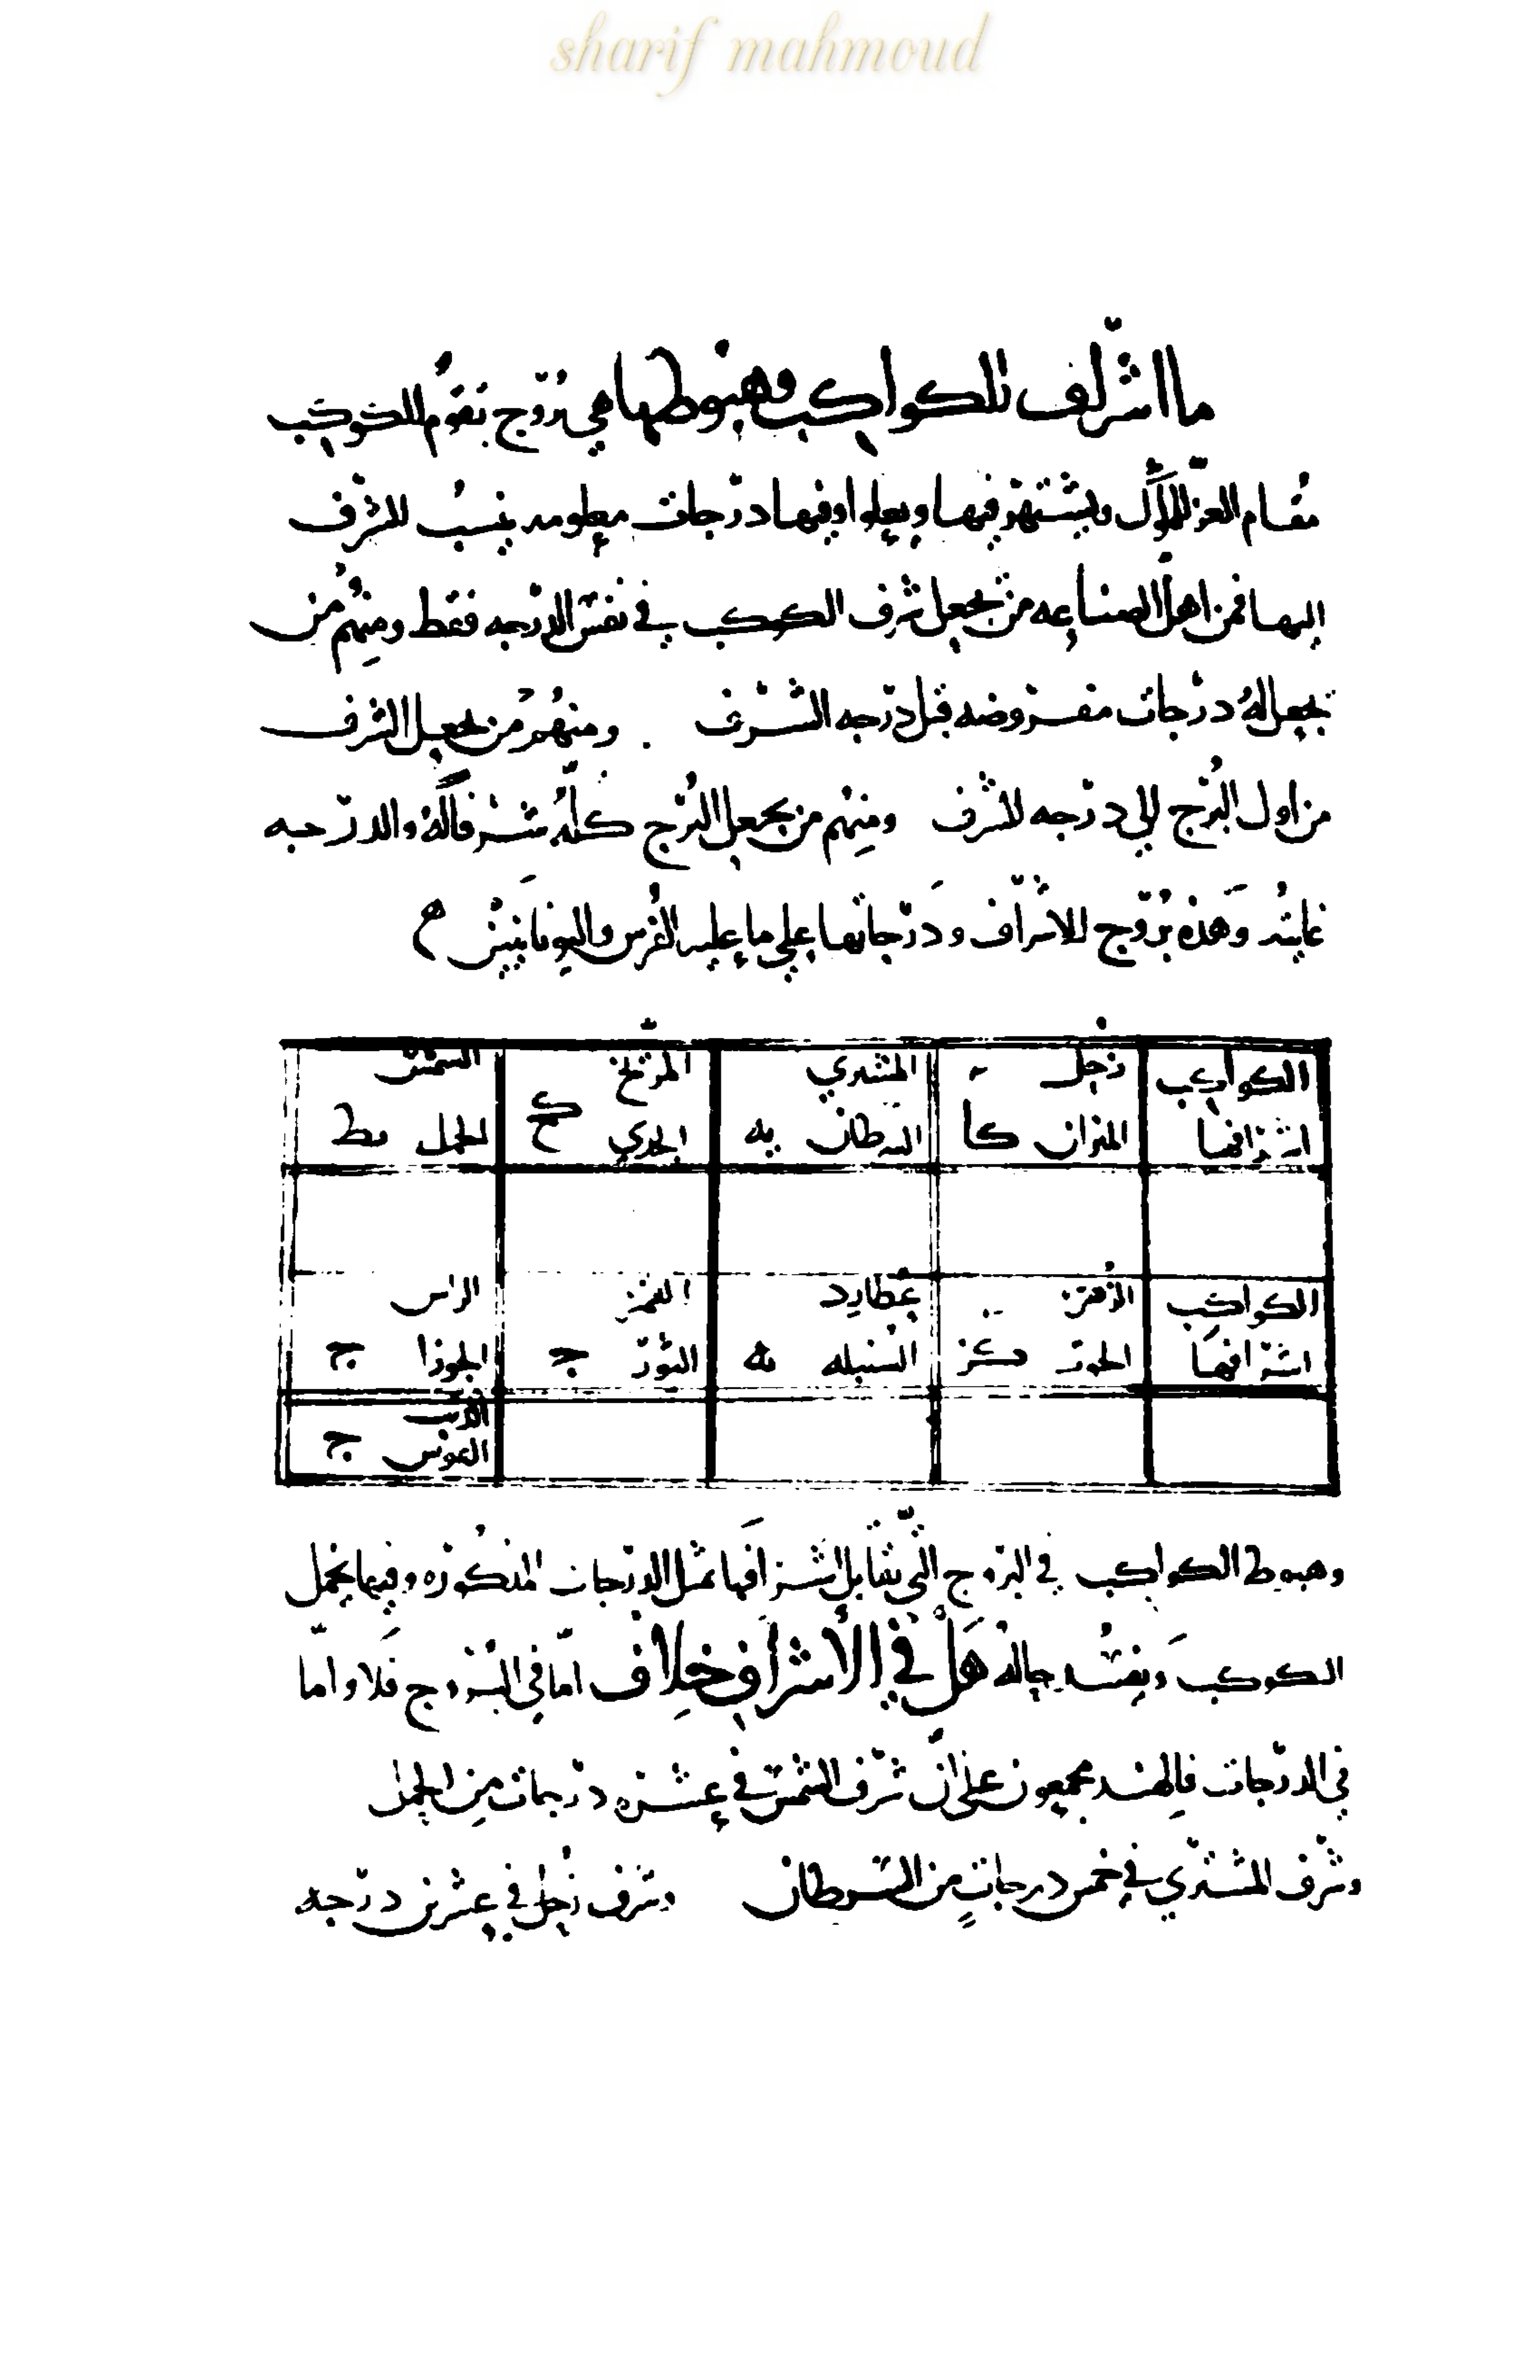 sharif mahmoud
ما اشراف الكواكب وهبوطها هي بروج تقوم للكوكب
مقام العز للملوك ويشتهر فيها ويعلوا وفيها درجات معلومه ينسب الشرف
اليها فمن اهل الصناعه من يجعل شرف الكوكب في نفس الدرجه فقط ومنهم من
يجعل له درجات مفروضه قبل درجه الشرف . ومنهم من يجعل الشرف
من اول البرج الي درجه الشرف ومنهم من يجعل البرج كله شرفا له والدرجه
غايته وهذه بروج الاشراف ودرجاتها علي ما عليه الفرس واليونانيين
الكواكب زحل المشتري المريخ الشمس
اشرافها الميزان كا السرطان يه الجدي كح الحمل يط
الكواكب الزهره عطارد القمر الراس
اشرافها الحوت كز السنبله يه الثور ج الجوزا ج
الذنب
القوس ج
وهبوط الكواكب في البروج التي تقابل اشرافها بمثل الدرجات المذكوره وفيها يخمل
الكوكب حاله هل في الأشراف خلاف اما في البروج فلا واما
في الدرجات فالهند مجمعون على ان شرف الشمس في عشره درجات من الحمل
وشرف المشتري في خمس درجات من السرطان وشرف زحل في عشرين درجه